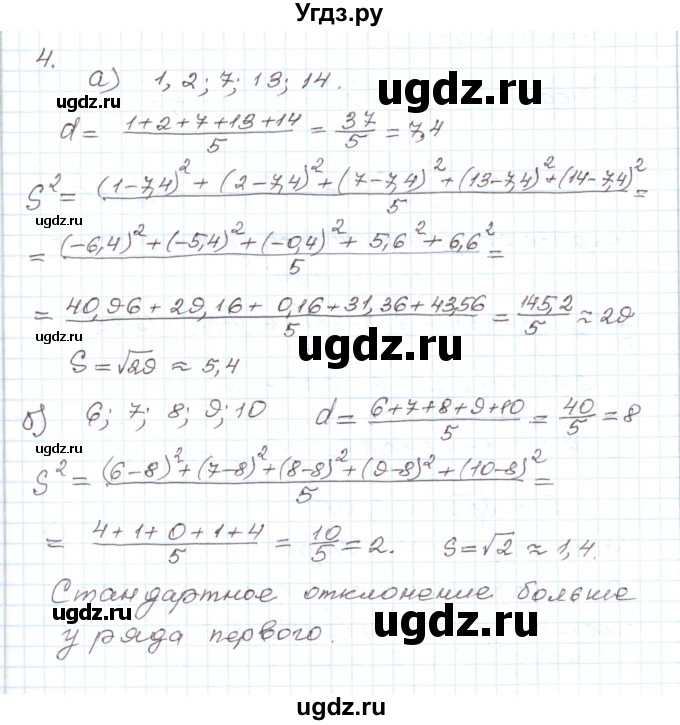 Угдз.ру
4.
а) 1, 2; 7; 13; 14.
ugdz.ru
d = (1+2+7+13+14)/5 = 37/5 = 7,4
ugdz.ru
S² = ((1-7,4)² + (2-7,4)² + (7-7,4)² + (13-7,4)² + (14-7,4)²)/5 =
ugdz.ru
= ((-6,4)² + (-5,4)² + (-0,4)² + 5,6² + 6,6²)/5 =
= (40,96 + 29,16 + 0,16 + 31,36 + 43,56)/5 = 145,2/5 ≈ 29
ugdz.ru
ugdz.ru
S = √29 ≈ 5,4
б) 6; 7; 8; 9; 10 d = (6+7+8+9+10)/5 = 40/5 = 8
ugdz.ru
S² = ((6-8)² + (7-8)² + (8-8)² + (9-8)² + (10-8)²)/5 =
= (4+1+0+1+4)/5 = 10/5 = 2. S = √2 ≈ 1,4.
Стандартное отклонение больше
ugdz.ru
ugdz.ru
у ряда первого.
ugdz.ru